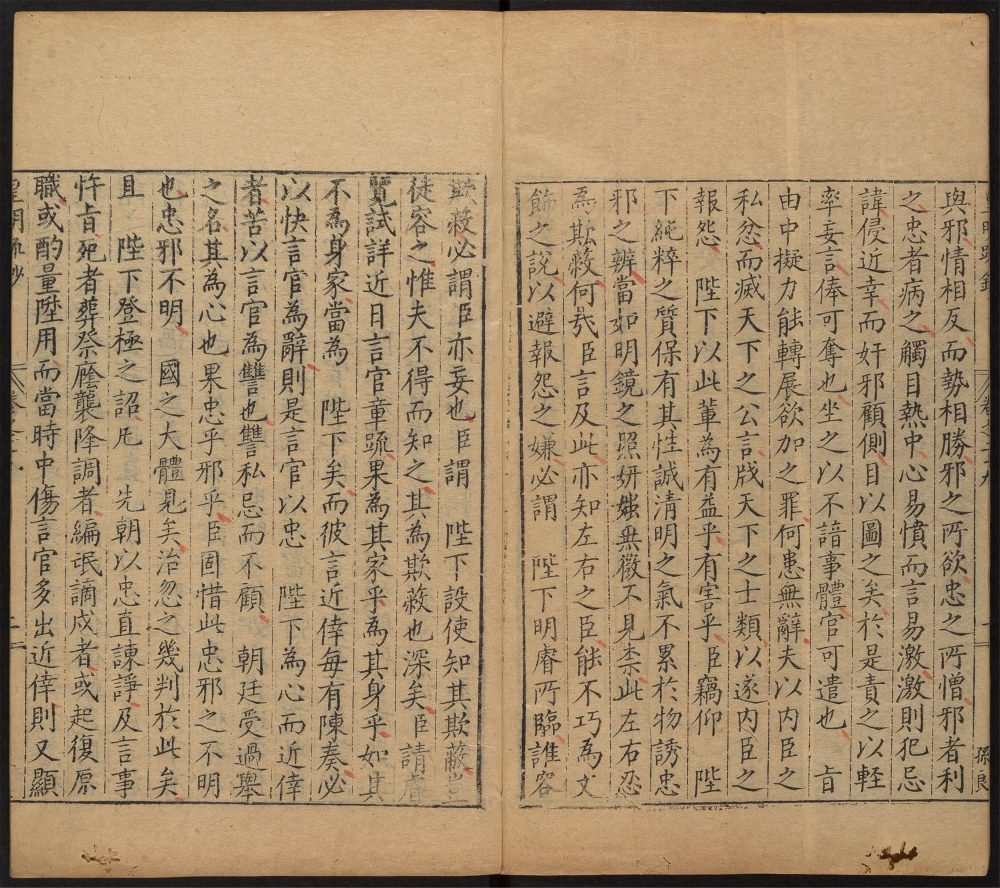 與邪情相反而勢相勝邪之所欲忠之所憎邪者利
之忠者病之觸目熱中心易憤而言易激激則犯忌
諱侵近幸而奸邪顧側目以圖之矣於是責之以輕
率妄言俸可奪也坐之以不諳事體官可遣也 旨
由中擬力能轉展欲加之罪何患無辭夫以内臣之
私忿而滅天下之公言戕天下之士類以遂内臣之
報怨 陛下以此輩為有益乎有害乎臣竊仰 陛
下純粹之質保有其性誠清明之氣不累於物誘忠
邪之辨當如明鏡之照妍媸無微不見柰此左右忍
為欺蔽何哉臣言及此亦知左右之臣能不巧為文
餙之說以避報怨之嫌必謂 陛下明睿所臨誰容
欺蔽必謂臣亦妄也臣謂 陛下設使知其欺蔽豈
徒容之惟夫不得而知之其為欺蔽也深矣臣請
覽試詳近日言官章疏果為其家乎為其身乎如其
不為身家當為 陛下矣而彼言近倖每有陳奏必
以快言官為辭則是言官以忠 陛下為心而近倖
者苦以言官為讐也讐私忌而不顧 朝廷受過舉
之名其為心也果忠乎邪乎臣固惜此忠邪之不明
也忠邪不明 國之大體見矣治忽之幾判於此矣
且 陛下登極之詔凡 先朝以忠直諫諍及言事
忤旨死者葬祭廕襲降調者編氓謫戍者或起復原
職或酌量陞用而當時中傷言官多出近倖則又顯
孫良